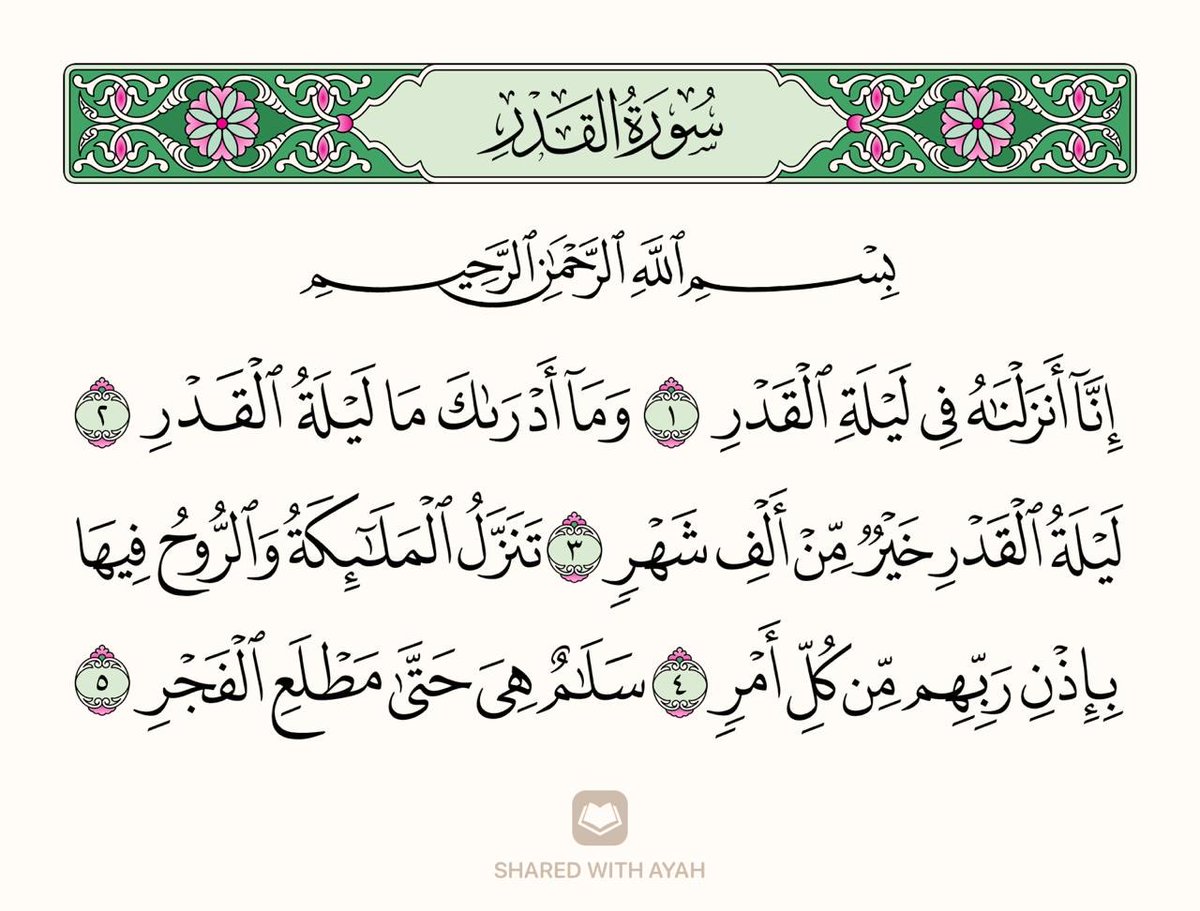 سُورَةُ الْقَدْرِ
بِسْمِ ٱللَّهِ ٱلرَّحْمَٰنِ ٱلرَّحِيمِ
إِنَّآ أَنزَلْنَٰهُ فِى لَيْلَةِ ٱلْقَدْرِ ١ وَمَآ أَدْرَىٰكَ مَا لَيْلَةُ ٱلْقَدْرِ ٢
لَيْلَةُ ٱلْقَدْرِ خَيْرٌ مِّنْ أَلْفِ شَهْرٍ ٣ تَنَزَّلُ ٱلْمَلَٰٓئِكَةُ وَٱلرُّوحُ فِيهَا
بِإِذْنِ رَبِّهِم مِّن كُلِّ أَمْرٍ ٤ سَلَٰمٌ هِىَ حَتَّىٰ مَطْلَعِ ٱلْفَجْرِ ٥
SHARED WITH AYAH